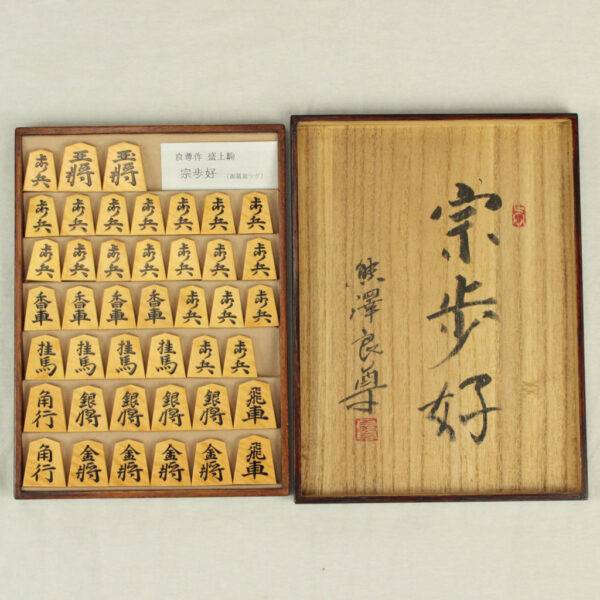 歩兵 王將 玉將
良尊作 盛上駒
宗歩好 (御蔵島ツゲ)
歩兵 歩兵 歩兵 歩兵 歩兵 歩兵 歩兵
歩兵 歩兵 歩兵 歩兵 歩兵 歩兵 歩兵
香車 香車 香車 香車 歩兵 歩兵 歩兵
桂馬 桂馬 桂馬 桂馬 歩兵 歩兵
角行 銀將 銀將 銀將 銀將 飛車
角行 金將 金將 金將 金將 飛車
宗歩好
熊澤良尊